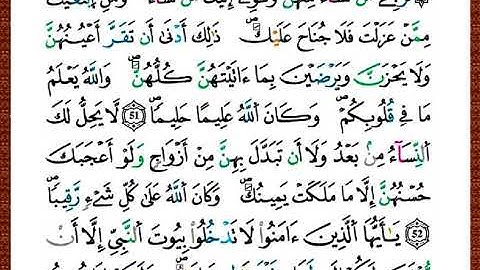 مِمَّنْ عَزَلْتَ فَلَا جُنَاحَ عَلَيْكَ ۚ ذَٰلِكَ أَدْنَىٰ أَن تَقَرَّ أَعْيُنُهُنَّ
وَلَا يَحْزَنَّ وَيَرْضَيْنَ بِمَا ءَاتَيْتَهُنَّ كُلُّهُنَّ ۚ وَاللَّهُ يَعْلَمُ
مَا فِي قُلُوبِكُمْ ۚ وَكَانَ اللَّهُ عَلِيمًا حَلِيمًا ﴿51﴾ لَّا يَحِلُّ لَكَ
النِّسَآءُ مِنۢ بَعْدُ وَلَآ أَن تَبَدَّلَ بِهِنَّ مِنْ أَزْوَٰجٍ وَلَوْ أَعْجَبَكَ
حُسْنُهُنَّ إِلَّا مَا مَلَكَتْ يَمِينُكَ ۗ وَكَانَ اللَّهُ عَلَىٰ كُلِّ شَيْءٍ رَّقِيبًا
﴿52﴾ يَٰٓأَيُّهَا الَّذِينَ ءَامَنُوا۟ لَا تَدْخُلُوا۟ بُيُوتَ النَّبِيِّ إِلَّآ أَن